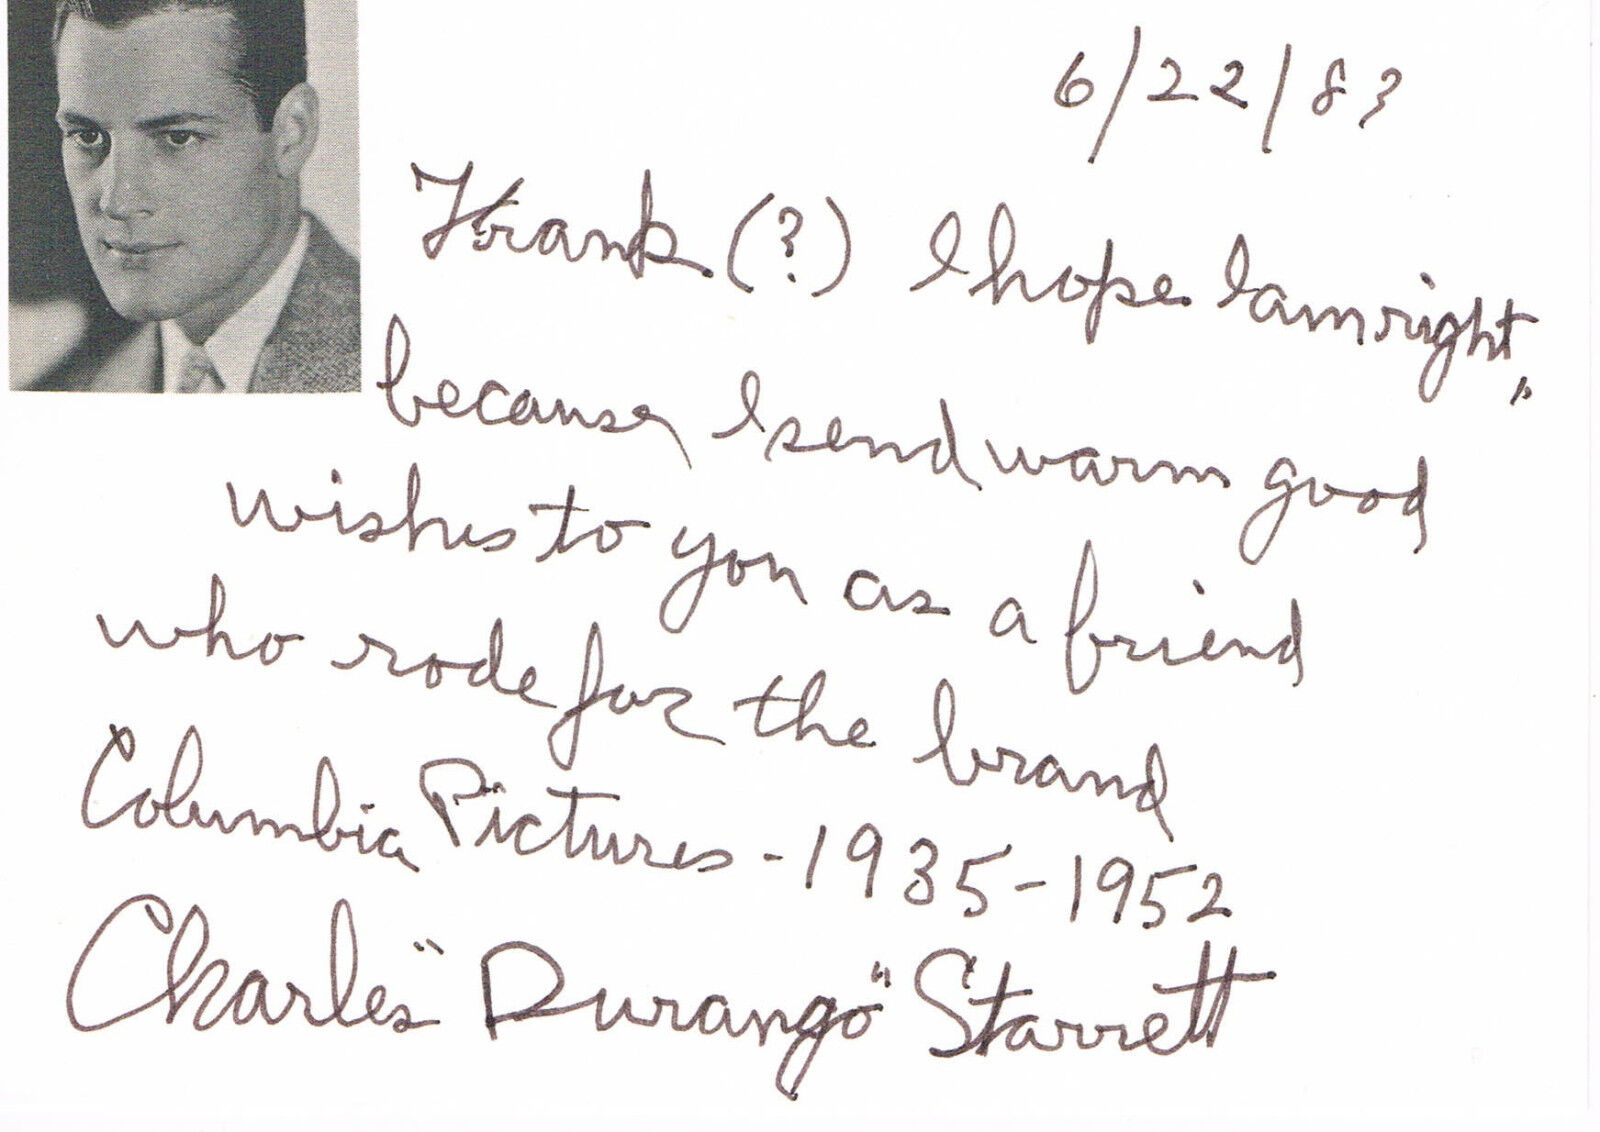 6/22/83
Frank (?) I hope I am right,
because I send warm good
wishes to you as a friend
who rode for the brand
Columbia Pictures - 1935-1952
Charles "Durango" Starrett